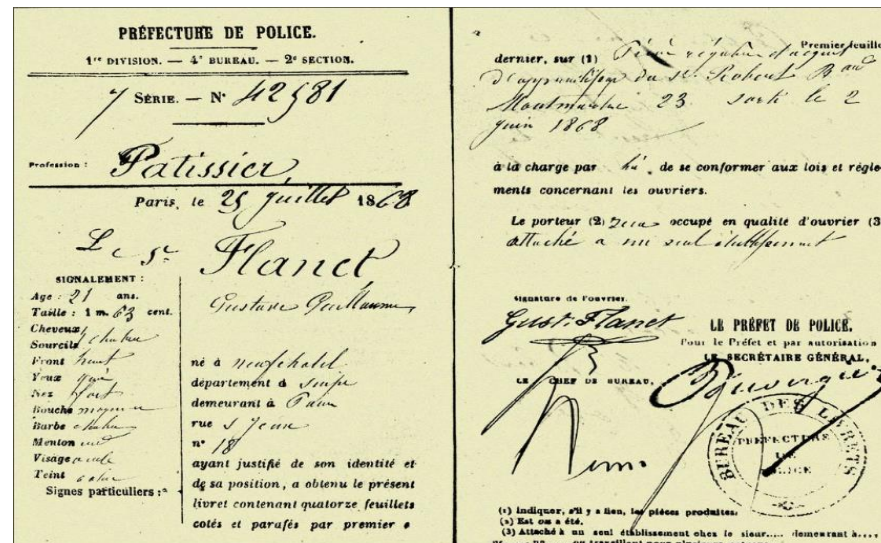 PRÉFECTURE DE POLICE.
1re DIVISION. — 4e BUREAU. — 2e SECTION.
7 SÉRIE. — N° 42581
Profession : Patissier
Paris, le 25 juillet 1868
Le Sr Flanet
Gustave Guillaume
SIGNALEMENT :
Age : 21 ans.
Taille : 1 m. 63 cent.
Cheveux
Sourcils
Front haut
Yeux gris
Nez fort
Bouche moyenne
Barbe
Menton rond
Visage ovale
Teint
Signes particuliers :
né à
département d
demeurant à Paris
rue St Jean
n° 18
ayant justifié de son identité et
de sa position, a obtenu le présent
livret contenant quatorze feuillets
cotés et parafés par premier e
Premier feuille
dernier, sur (1)
d'apprentissage du Sr Robert Bard
Montmartre 23 sorti le 2
juin 1868
à la charge par lui de se conformer aux lois et règle-
ments concernant les ouvriers.
Le porteur (2) sera occupé en qualité d'ouvrier (3
attaché a un seul établissement
Signature de l'ouvrier.
Gust. Flanet
LE PRÉFET DE POLICE.
Pour le Préfet et par autorisation
LE SECRÉTAIRE GÉNÉRAL,
LE CHEF DE BUREAU,
BUREAU DES LIVRETS
PRÉFECTURE
DE
POLICE
(1) Indiquer, s'il y a lieu, les pièces produites.
(2) Est ou a été.
(3) Attaché à un seul établissement chez le sieur..... demeurant à....